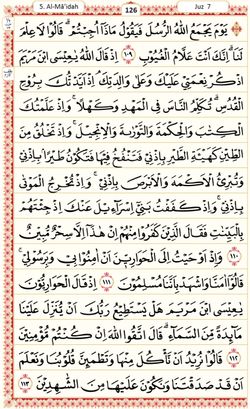 5. Al-Mâ'idah
126
Juz 7
يَوْمَ يَجْمَعُ اللّٰهُ الرُّسُلَ فَيَقُوْلُ مَاذَٓا اُجِبْتُمْۗ قَالُوْا لَا عِلْمَ
لَنَاۗ اِنَّكَ اَنْتَ عَلَّامُ الْغُيُوْبِ ١٠٩ اِذْ قَالَ اللّٰهُ يٰعِيْسَى ابْنَ مَرْيَمَ
اذْكُرْ نِعْمَتِيْ عَلَيْكَ وَعَلٰى وَالِدَتِكَۘ اِذْ اَيَّدْتُّكَ بِرُوْحِ
الْقُدُسِۗ تُكَلِّمُ النَّاسَ فِى الْمَهْدِ وَكَهْلًاۚ وَاِذْ عَلَّمْتُكَ
الْكِتٰبَ وَالْحِكْمَةَ وَالتَّوْرٰىةَ وَالْاِنْجِيْلَۚ وَاِذْ تَخْلُقُ مِنَ
الطِّيْنِ كَهَيْـَٔةِ الطَّيْرِ بِاِذْنِيْ فَتَنْفُخُ فِيْهَا فَتَكُوْنُ طَيْرًا ۢبِاِذْنِيْ
وَتُبْرِئُ الْاَكْمَهَ وَالْاَبْرَصَ بِاِذْنِيْۚ وَاِذْ تُخْرِجُ الْمَوْتٰى
بِاِذْنِيْۚ وَاِذْ كَفَفْتُ بَنِيْٓ اِسْرَاۤءِيْلَ عَنْكَ اِذْ جِئْتَهُمْ
بِالْبَيِّنٰتِ فَقَالَ الَّذِيْنَ كَفَرُوْا مِنْهُمْ اِنْ هٰذَٓا اِلَّا سِحْرٌ مُّبِيْنٌ
١١٠ وَاِذْ اَوْحَيْتُ اِلَى الْحَوَارِيّٖنَ اَنْ اٰمِنُوْا بِيْ وَبِرَسُوْلِيْۚ
قَالُوْٓا اٰمَنَّا وَاشْهَدْ بِاَنَّنَا مُسْلِمُوْنَ ١١١ اِذْ قَالَ الْحَوَارِيُّوْنَ
يٰعِيْسَى ابْنَ مَرْيَمَ هَلْ يَسْتَطِيْعُ رَبُّكَ اَنْ يُّنَزِّلَ عَلَيْنَا
مَاۤىِٕدَةً مِّنَ السَّمَاۤءِۗ قَالَ اتَّقُوا اللّٰهَ اِنْ كُنْتُمْ مُّؤْمِنِيْنَ
١١٢ قَالُوْا نُرِيْدُ اَنْ نَّأْكُلَ مِنْهَا وَتَطْمَىِٕنَّ قُلُوْبُنَا وَنَعْلَمَ
اَنْ قَدْ صَدَقْتَنَا وَنَكُوْنَ عَلَيْهَا مِنَ الشّٰهِدِيْنَ ١١٣